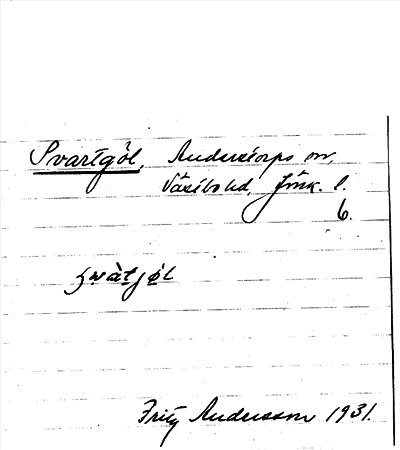 Svartgöl, Anderstorps sn,
Västbo hd, Jönk. l.
6.
swàtjøl
Fritz Andersson 1931.